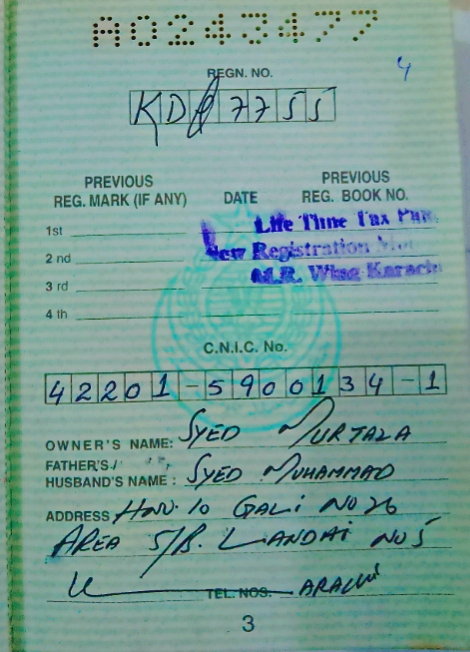 A0243477
4
REGN. NO.
KD 7755
PREVIOUS REG. MARK (IF ANY) DATE PREVIOUS REG. BOOK NO.
Life Time Tax
New Registration
M.R. Wing Karachi
1st
2nd
3rd
4th
C.N.I.C. No.
42201-5900134-1
OWNER'S NAME: SYED MURTAZA
FATHER'S/
HUSBAND'S NAME: SYED MUHAMMAD
ADDRESS HNO. 10 GALI NO 26
AREA 5/B. LANDHI NO 5
TEL. NOS.
3